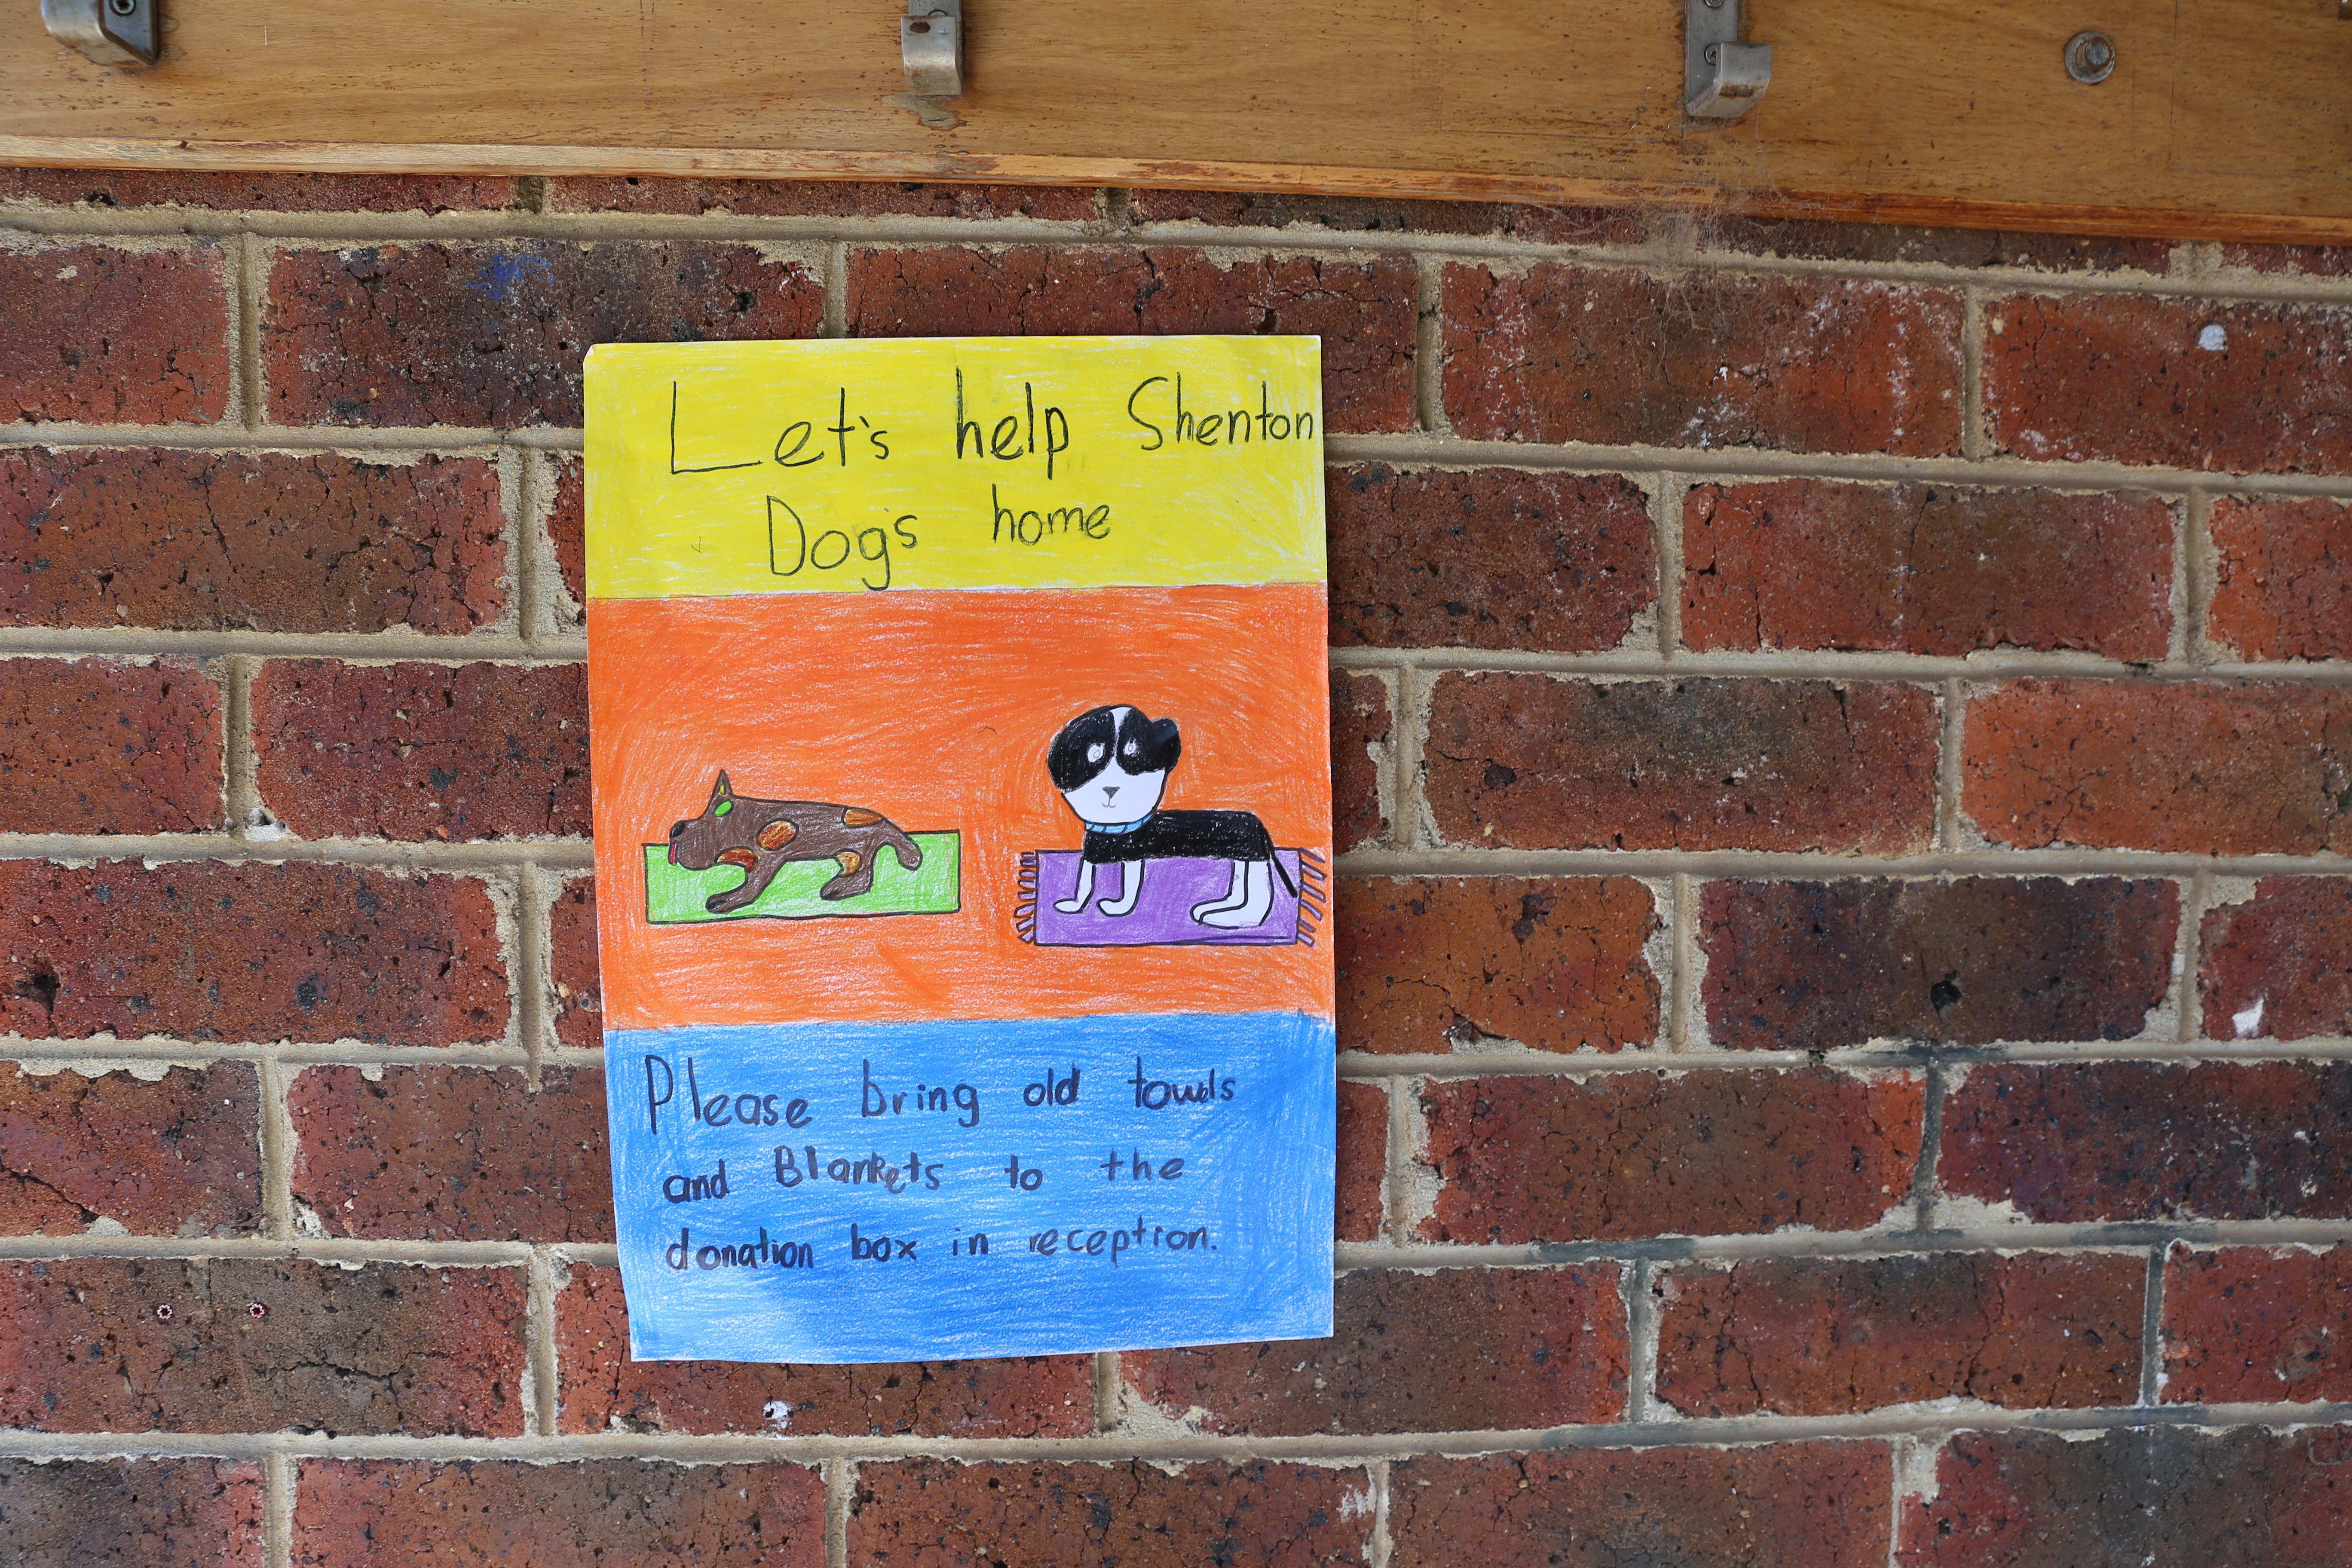 Let's help Shenton
Dog's home
Please bring old towels
and Blankets to the
donation box in reception.